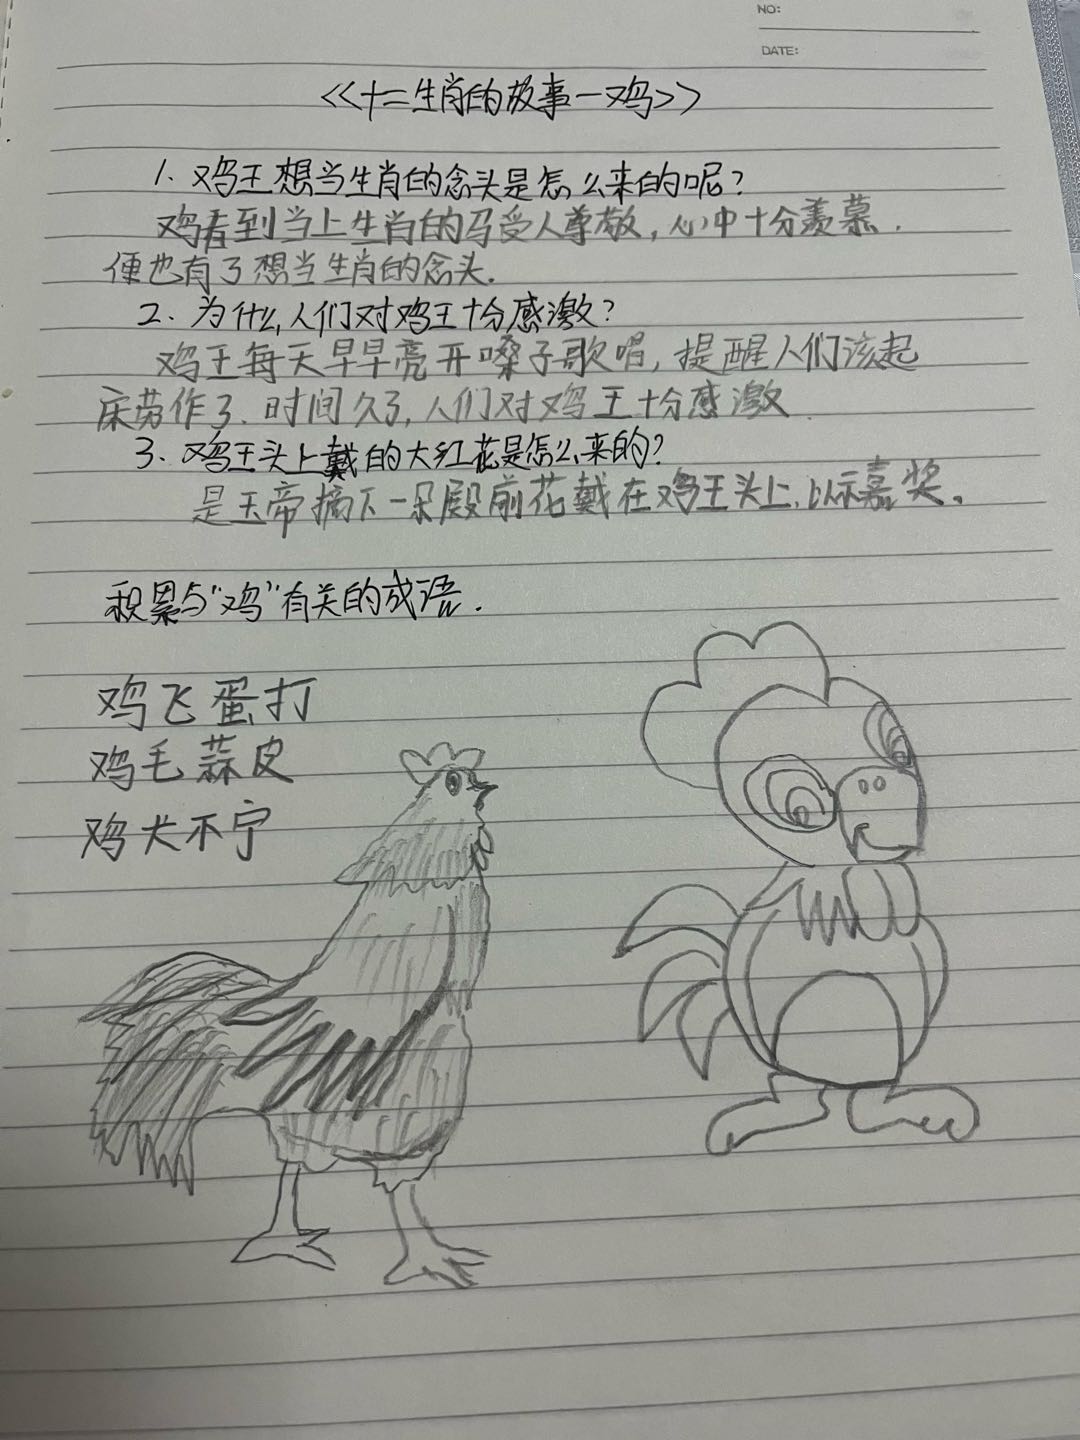 NO:
DATE:
<<十二生肖的故事一鸡>>
1. 鸡王想当生肖的念头是怎么来的呢？
鸡看到当上生肖的马受人尊敬，心中十分羡慕.
便也有了想当生肖的念头.
2. 为什么人们对鸡王十分感激？
鸡王每天早早亮开嗓子歌唱，提醒人们该起
床劳作了.时间久了,人们对鸡王十分感激
3、鸡王头上戴的大红花是怎么来的？
是玉帝摘下一朵殿前花戴在鸡王头上,以示嘉奖。
积累与"鸡"有关的成语.
鸡飞蛋打
鸡毛蒜皮
鸡犬不宁